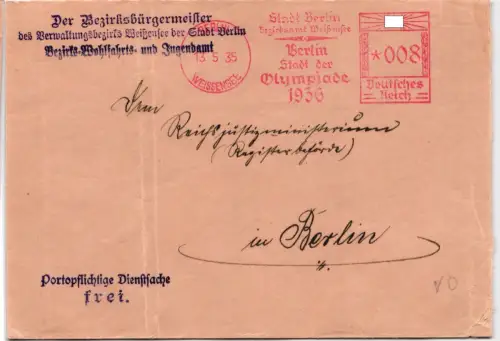 Der Bezirksbürgermeister
des Verwaltungsbezirks Weißensee der Stadt Berlin
Bezirks-Wohlfahrts- und Jugendamt
BERLIN
13.5.35
WEISSENSEE
Stadt Berlin
Bezirksamt Weißensee
Berlin
Stadt der
Olympiade
1936
*008
Deutsches
Reich
Dem
Reichsjustizministerium
(Registerbehörde)
in Berlin
Portopflichtige Dienstsache
frei.